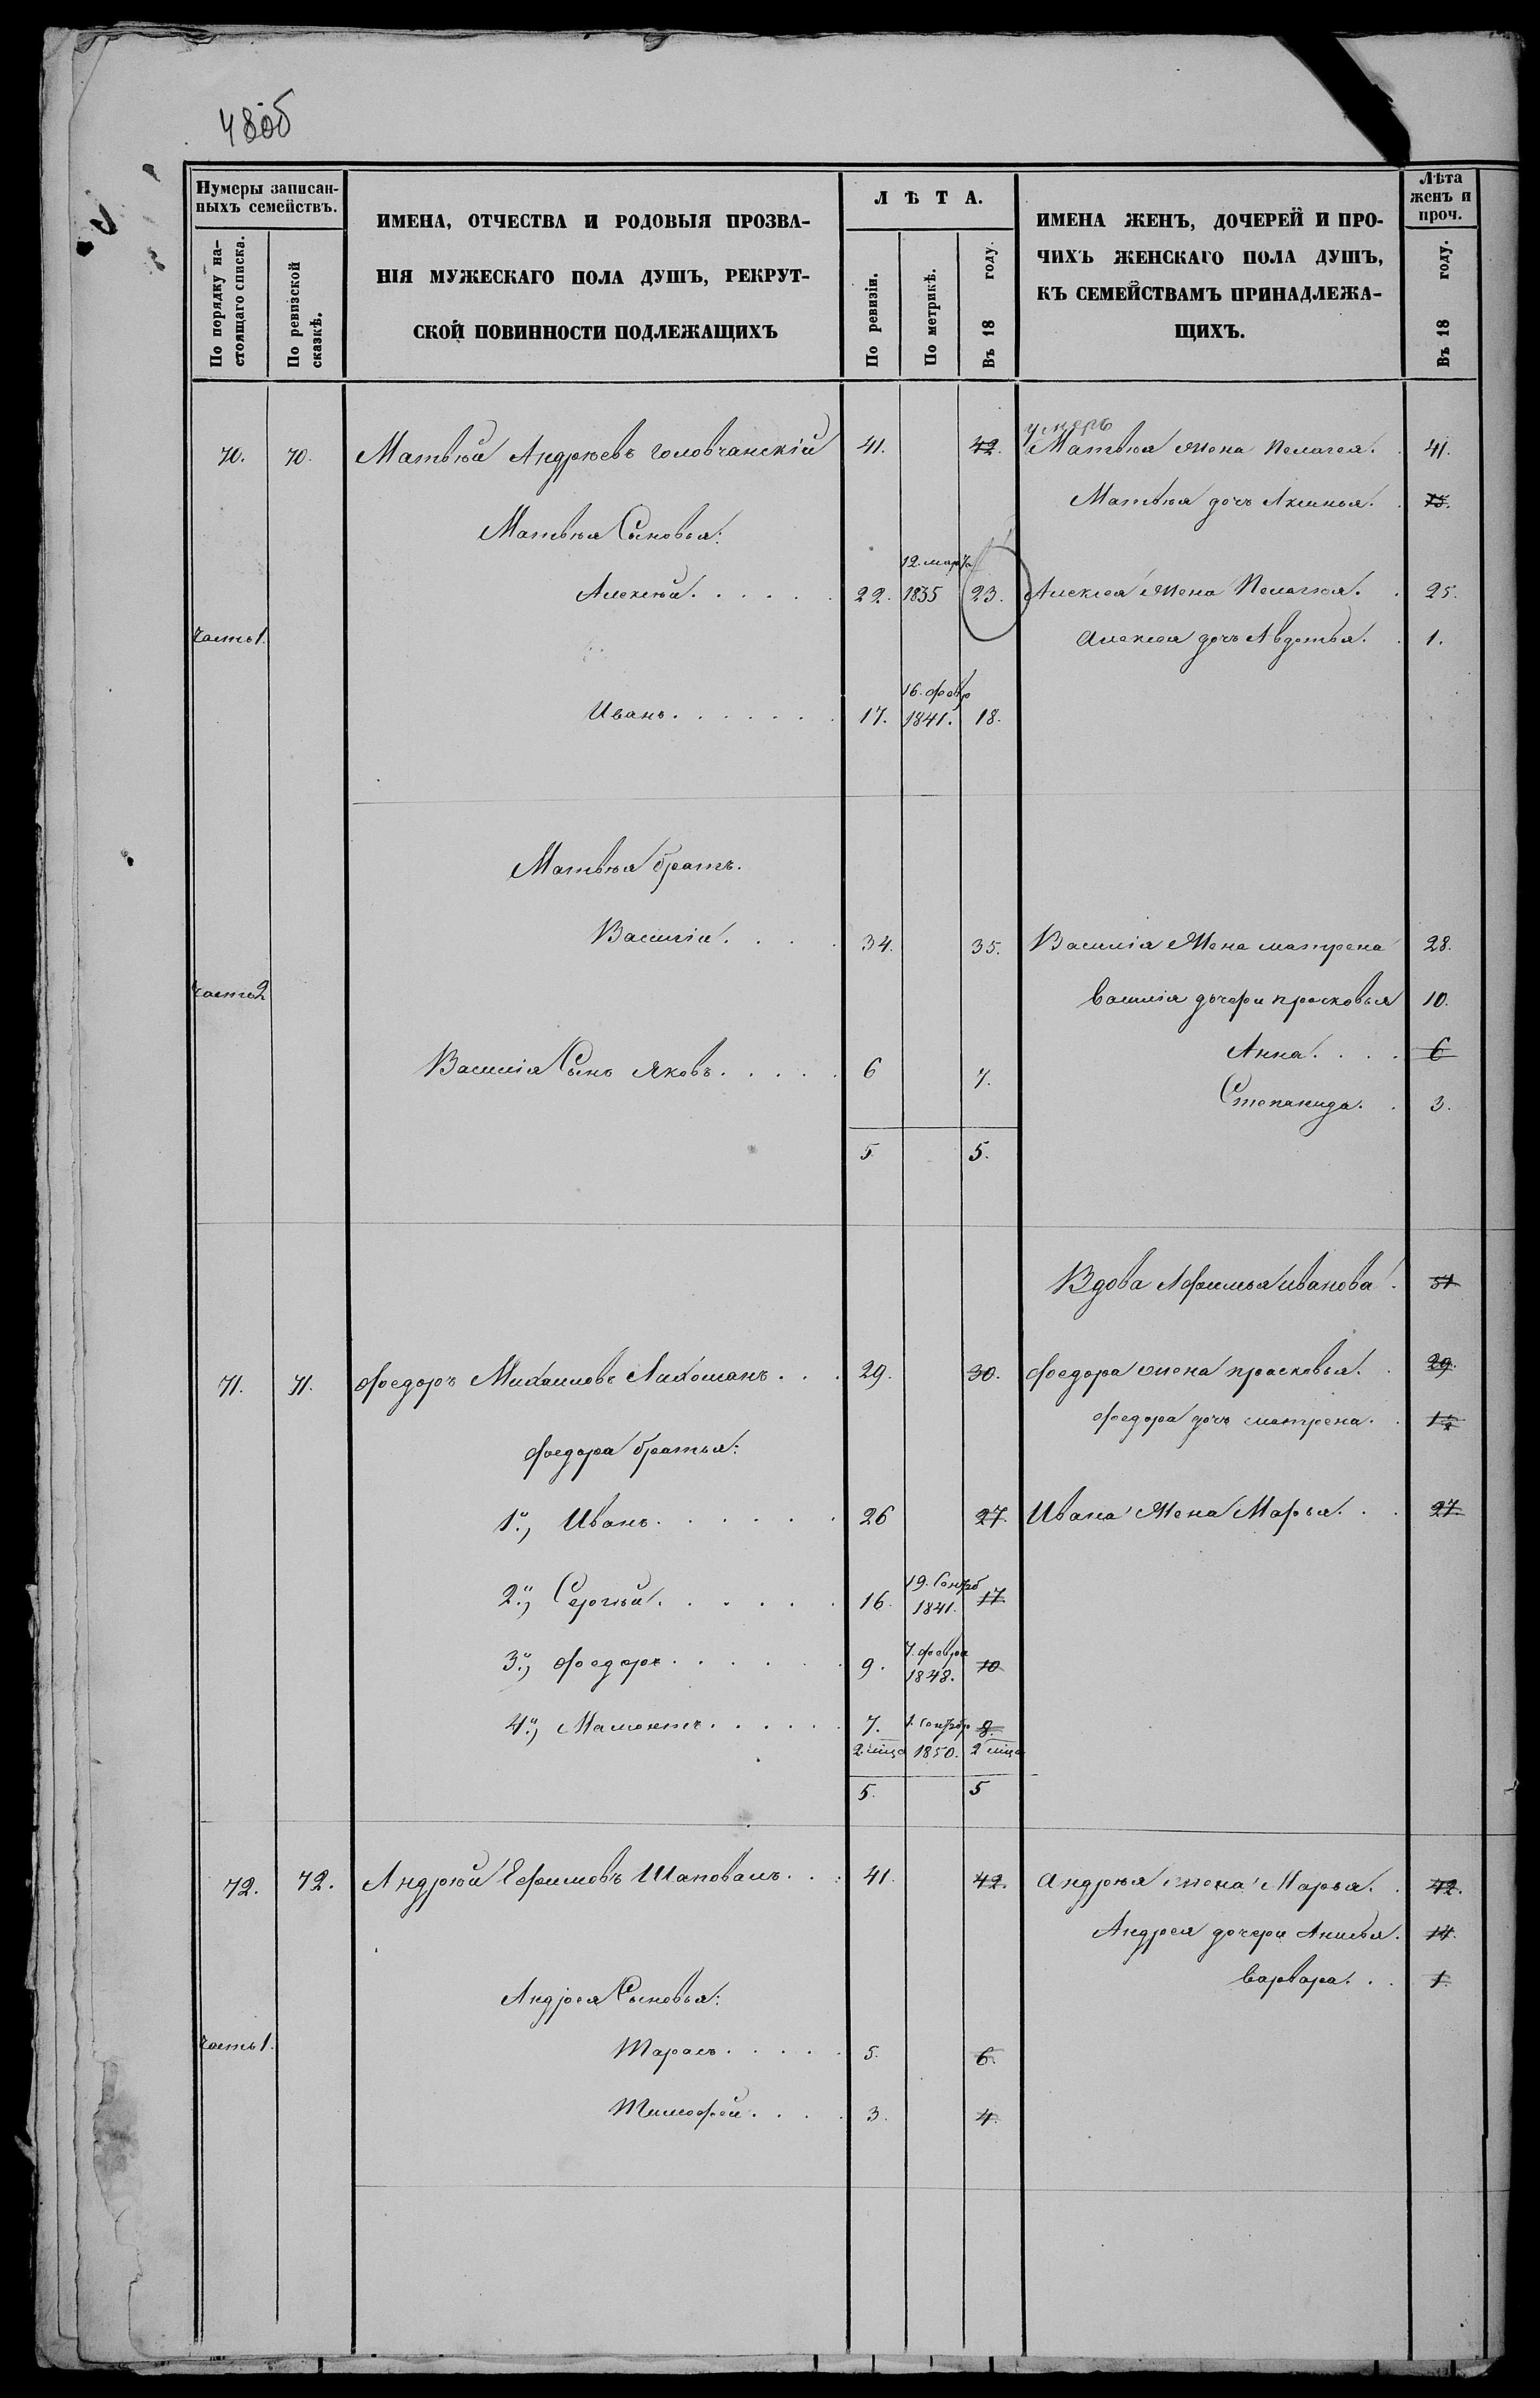 48об
Нумеры записан-
ныхъ семействъ.
По порядку на-
стоящаго списка.
По ревизской
сказкѣ.
ИМЕНА, ОТЧЕСТВА И РОДОВЫЯ ПРОЗВА-
НІЯ МУЖЕСКАГО ПОЛА ДУШЪ, РЕКРУТ-
СКОЙ ПОВИННОСТИ ПОДЛЕЖАЩИХЪ
ЛѢТА.
По ревизіи.
По метрикѣ.
Въ 18 году.
ИМЕНА ЖЕНЪ, ДОЧЕРЕЙ И ПРО-
ЧИХЪ ЖЕНСКАГО ПОЛА ДУШЪ,
КЪ СЕМЕЙСТВАМЪ ПРИНАДЛЕЖА-
ЩИХЪ.
Лѣта
женъ и
проч.
Въ 18 году.
умеръ
70. 70. Матвѣй Андрѣевъ головчанскій 41. 42. Матвѣя жена Пелагея. 41.
Матвѣя дочь Аксинья. 15.
Матвѣя Сыновья:
12. марта
Алексѣй. 22. 1835 23. Алексея жена Пелагея. 25.
часть 1. Алексея дочь Авдотья. 1.
16. февр
Иванъ. 17. 1841. 18.
Матвѣя братъ.
Василій. 34. 35. Василія Жена матрена 28.
часть 2 василія дочери прасковья 10.
Анна. 6
Василія Сынъ Яковъ. 6 7.
Степанида. 3.
5 5.
Вдова Афимья иванова. 51
71. 71. федоръ Михайловъ Лихоманъ. 29. 30. федора жена прасковья. 29.
федора дочь матрена. 1½
федора братья:
1й, Иванъ. 26 27. Ивана Жена Марья. 27.
19. Сентяб
2й, Сергѣй. 16. 1841. 17.
7. февра
3й, федоръ. 9. 1848. 10
4й, Мамонтъ. 7. 1. сентябр 8.
2. мца 1850. 2 мца
5. 5
72. 72. Андрѣй Ефимовъ Шаповалъ. 41. 42. андрѣя жена Марья. 42.
Андрея дочери Анисья. 14.
варвара. 1.
Андрея Сыновья:
часть 1. Тарасъ. 5. 6.
Тимофей. 3. 4.